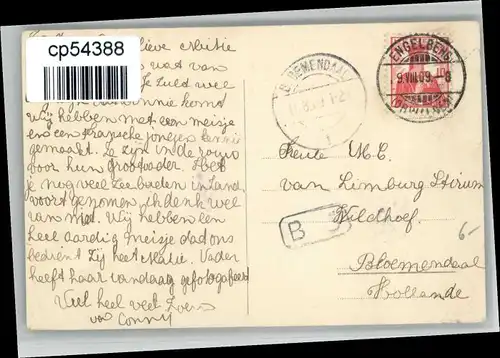 cp54388
lieve
wat van
Je zuld wel
kennis
Wij hebben met een meisje
en een Fransche jongen kennis
gemaakt. Ze zijn in de rouw
voor hun Grootvader. Heb
je nog veel zeebaden in Zand
voort genomen, ik denk wel
van niet. Wij hebben een
heel aardig meisje dad ons
bedient Zij heet Malie. Vader
heeft haar vandaag gefotografeerd
Veel heel veel Zoens
van Conny
BLOEMENDAAL
ENGELBERG
9.VIII.09.-8
10
B
Freule M.C.
van Limburg Stirum
Wildhoef.
6-
Bloemendaal
Hollande